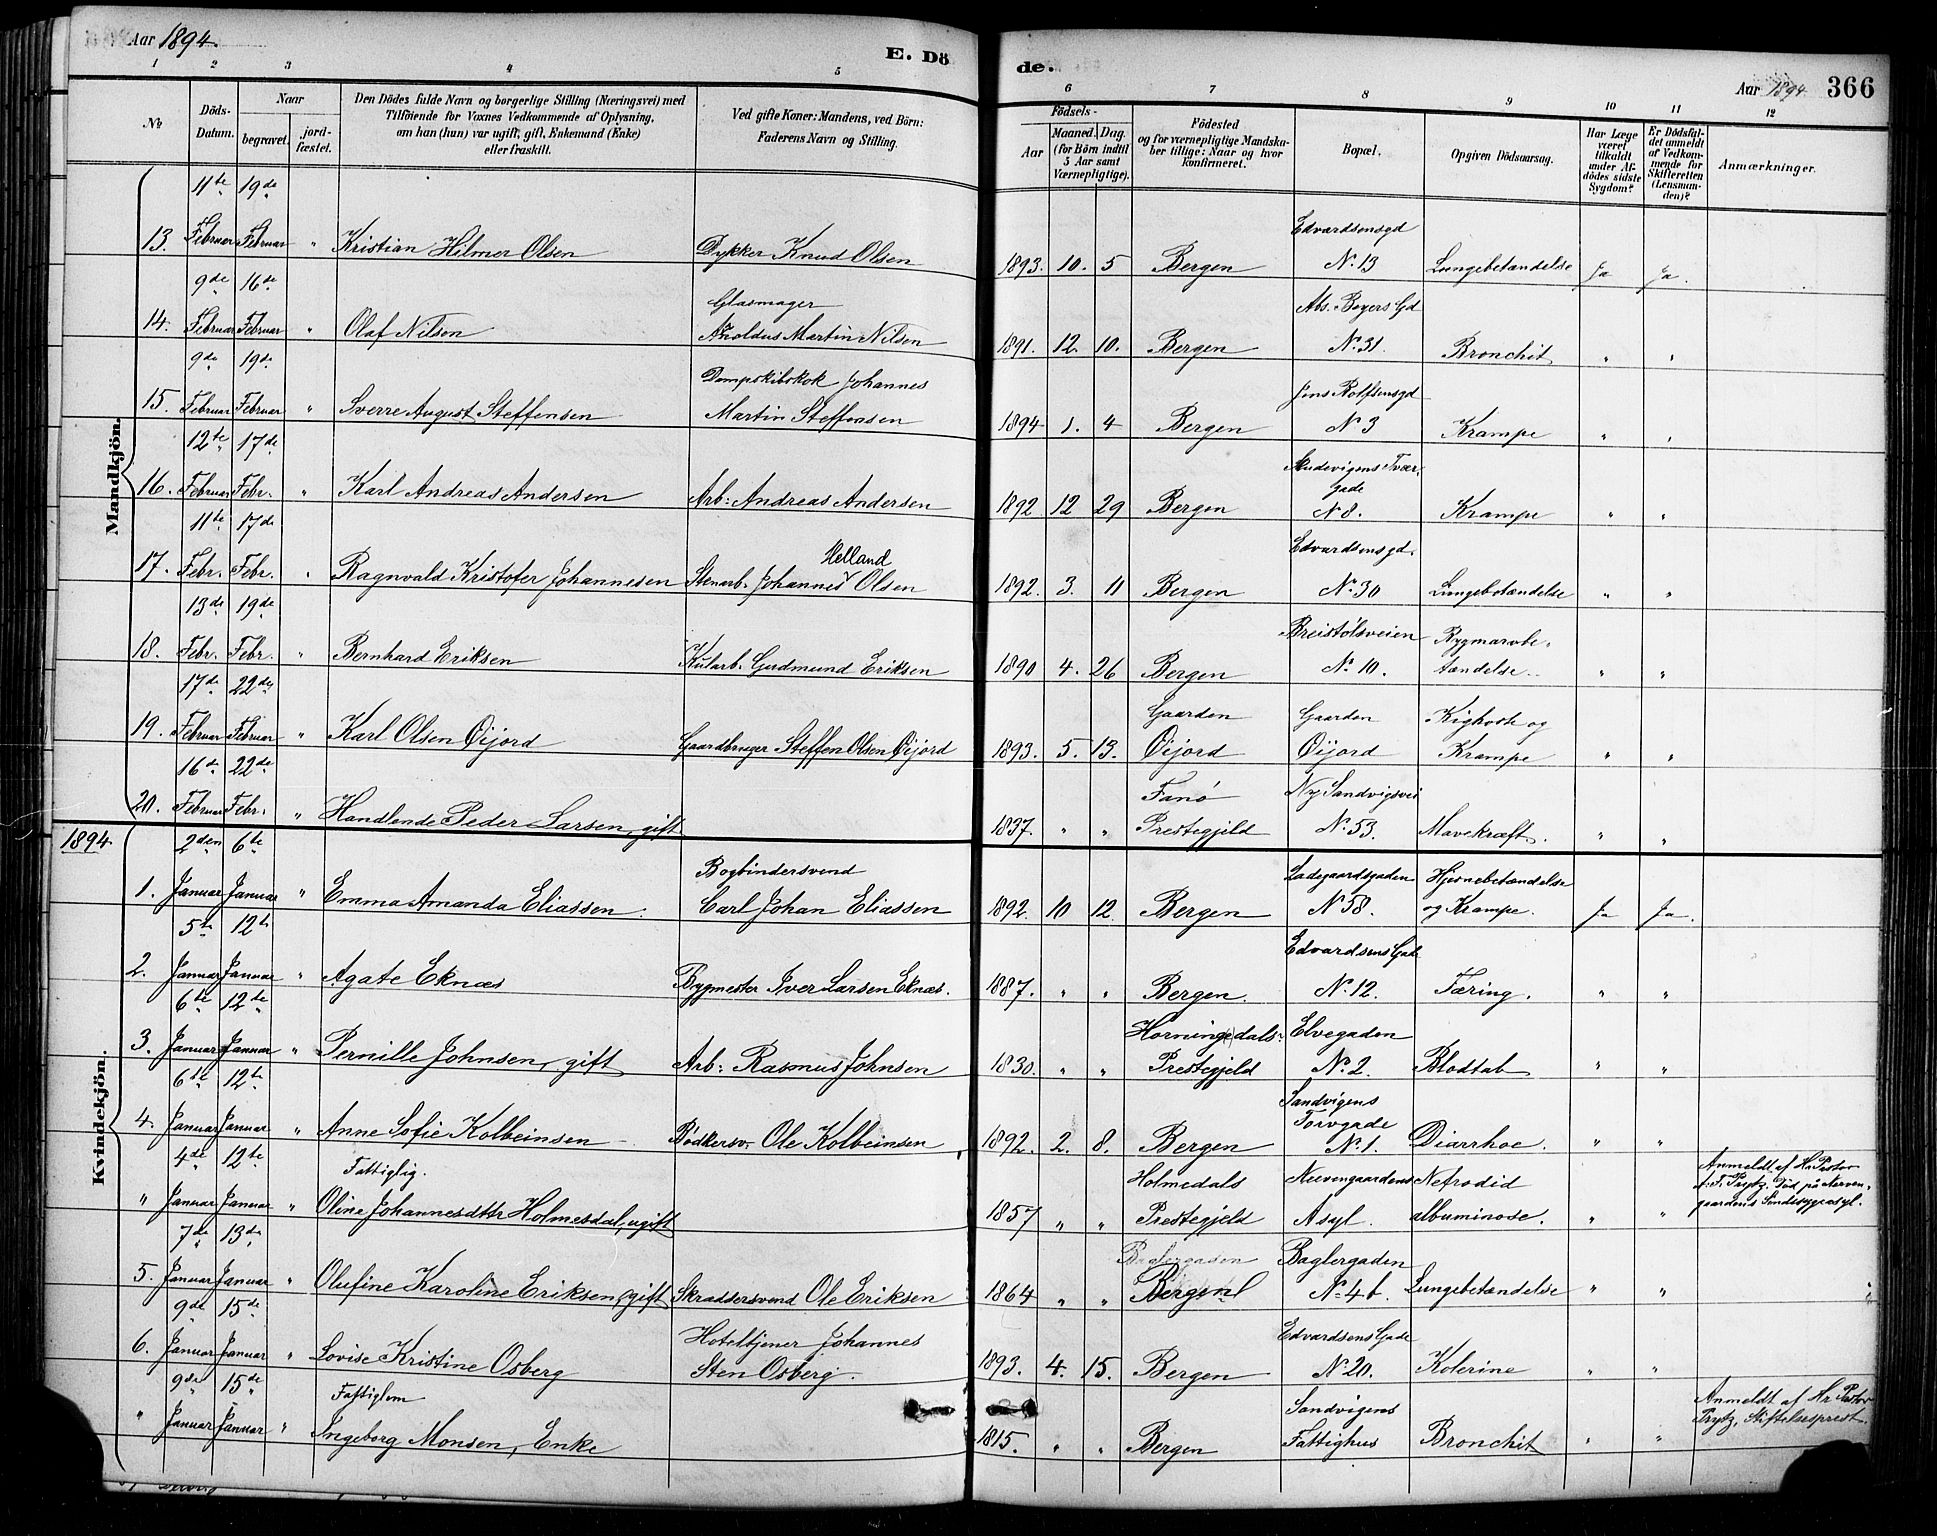 Aar 1894.
E. Dö
de.
Aar 1894 366
1 2 3 4 5 6 7 8 9 10 11 12
No
Döds-
Datum.
Naar
begravet. jord-
fæstet.
Den Dödes fulde Navn og borgerlige Stilling (Næringsvei) med
Tilföiende for Voxnes Vedkommende af Oplysning,
om han (hun) var ugift, gift, Enkemand (Enke)
eller fraskilt.
Ved gifte Koner: Mandens, ved Börn:
Faderens Navn og Stilling.
Födsels-
Aar Maaned. Dag.
(for Börn indtil
5 Aar samt
Værnepligtige).
Födested
og for værnepligtige Mandska-
ber tillige: Naar og hvor
konfirmeret.
Bopæl.
Opgiven Dödsaarsag.
Har Læge
været
tilkaldt
under Af-
dödes sidste
Sygdom?
Er Dödsfal-
det anmeldt
af Vedkom-
mende for
Skifteretten
(Lensman-
den)?
Anmærkninger.
Mandkjön.
11te 19de
Edvardsensgd
13. Februar Februar " Kristian Hilmer Olsen Dykker Knud Olsen 1893. 10. 5 Bergen No 13 Lungebetændelse Ja Ja.
9de 16de Glasmager Abs. Beyers Gd
14. Februar Februar " Olaf Nilsen Arnoldus Martin Nilsen 1891. 12. 10. Bergen No 31. Bronchit " "
9de 19de Dampskibskok Johannes Jens Rolfsensgd
15. Februar Februar " Sverre August Steffensen Martin Steffensen 1894 1. 4 Bergen No 3 Krampe " "
12te 17de Mudevigens Tvær-
gade
16. Februar Febr. " Karl Andreas Andersen Arb: Andreas Andersen 1892 12 29 Bergen No 8. Krampe " "
11te 17de Helland Edvardsensgd.
17. Febr. Febr. " Ragnvald Kristofer Johannesen Stenarb. Johannes Olsen 1892. 3. 11 Bergen No 30 Lungebetændelse " "
13de 19de Breistølsveien Rygmarvbe-
18. Febr. Febr. " Bernhard Eriksen Kularb. Gudmund Eriksen 1890 4. 26 Bergen No 10. tændelse " "
17de 22de Gaarden Gaarden Kighoste og
19. Februar Februar " Karl Olsen Øijord Gaardbruger Steffen Olsen Øijord 1893. 5. 13. Øijord Øijord Krampe " "
16de 22de Fanø Ny Sandvigsvei
20. Februar Febr. " Handlende Peder Larsen, gift 1837. " " Prestegjeld No 53. Mavekræft. " "
1894.
Kvindekjön.
2den 6te Bogbindersvend Ladegaardsgaden Hjernebetændelse
1. Januar Januar " Emma Amanda Eliassen. Carl Johan Eliassen 1892. 10 12. Bergen No 58. og Krampe. Ja Ja.
5te 12te Edvardsens Gade
2. Januar Januar " Agate Eknæs Bygmester Iver Larsen Eknæs. 1887. " " Bergen. No 12. Tæring. " "
6te 12te Horningdals- Elvegaden
3. Januar Januar " Pernille Johnsen, gift Arb: Rasmus Johnsen 1830. " " Prestegjeld No 2. Blodtab " "
6te 12te Sandvigens
Torvgade
4. Januar Januar " Anne Sofie Kolbeinsen Bødkersv. Ole Kolbeinsen 1892. 2. 8. Bergen No 1. Diarrhoe. " "
4de 12te Fattiglig. Holmedals Neevengaardens Nefrodid Anmeldt af Hr Pastor
" Januar Januar " Oline Johannesdttr Holmesdal, ugift 1857 " " Prestegjeld Asyl. albuminose. " " Prytz. Død på Nerven-
gaardens Sindssygeasyl.
7de 13de Baglergaden Baglergaden
5. Januar Januar " Olufine Karoline Eriksen, gift Skraddersvend Ole Eriksen 1864 " " Bergen No 4 b. Lungebetændelse " "
9de 15de Hoteltjener Johannes Edvardsens Gade
6. Januar Januar " Lovise Kristine Osberg Sten Osberg. 1893. 4. 15. Bergen No 20. Kolerine " "
9de 15de Fattiglem Sandvigens Anmeldt af Hr Pastor
" Januar Januar " Ingeborg Monsen, Enke 1815. " " Bergen Fattighus Bronchit " " Prytz, Stiftelsesprest.